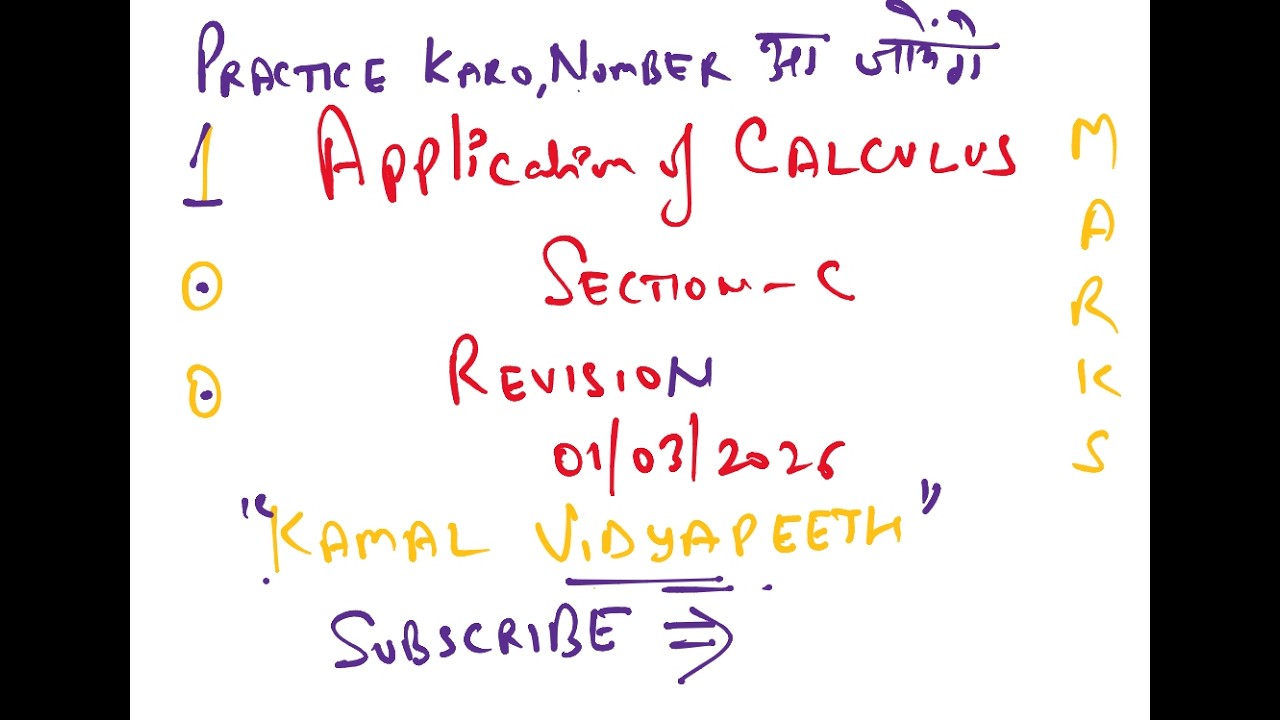 PRACTICE KARO, NUMBER आ जायेंगे
100
Application of CALCULUS
MARKS
SECTION - C
REVISION
01/03/2026
"KAMAL VIDYAPEETH"
SUBSCRIBE ⇒